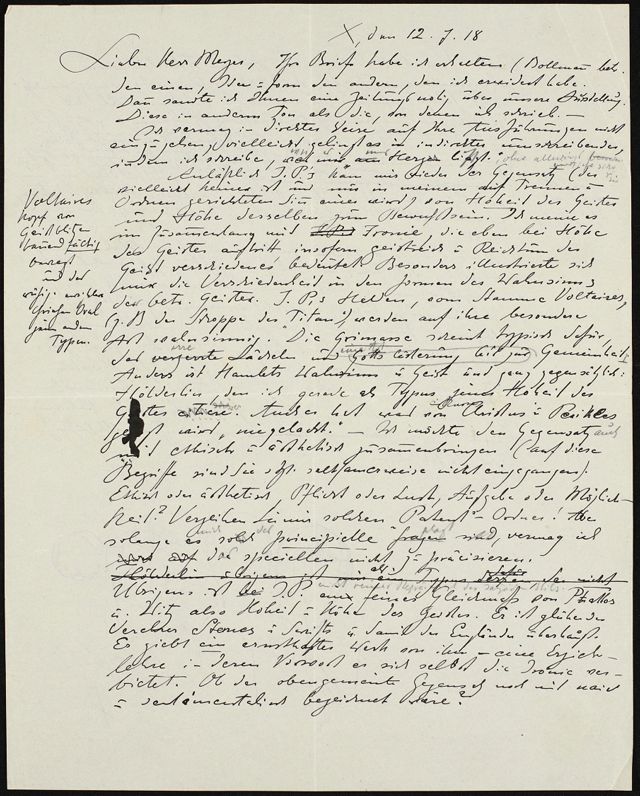 X, den 12. 7. 18
Lieber Herr Meyer, Ihre Briefe habe ich erhalten (Bollmann betr.
den einen, den andern, den ich erwidert habe.
Dan sandte ich Ihnen eine Zeitungsnotiz über unsere Ausstellung.
Diese in anderm Ton als die, von denen ich schrieb. —
Ich vermag in direkter Weise auf Ihre Ausführungen nicht
einzugehen, vielleicht gelingt es in indirekter umschreibender,
indem ich schreibe, was mir am Herzen liegt.
Anläßlich J. P.s kam mir wieder der Gegensatz (der
vielleicht keiner ist und nur in meinem auf Trennen u
Ordnen gerichteten Sinn einer wird) von Hoheit des Geistes
und Höhe desselben zum Bewußtsein. Ich meine es
im Zusammenhang mit Ironie, die eben bei Höhe
des Geistes auftritt insofern geistreich u Reichtum des
Geists verschiedenes bedeutet. Besonders illustrierte sich
mir die Verschiedenheit in den Formen des Wahnsinns
der betr. Geister. J. P.s Helden, vom Stamme Voltaires,
z. B. der Schoppe des "Titan", werden auf ihre besondere
Art wahnsinnig. Die Grimasse scheint typisch dafür,
das verzerrte Lächeln und Gotteslästerung bis zur Gemeinheit.
Anders ist Hamlets Wahnsinn u Geist und ganz gegensätzlich:
Hölderlin den ich gerade als Typus jener Hoheit des
Geistes citiere. Auch es hat, wird von Christus u Perikles
gesagt wird, "nie gelacht." — Ich möchte den Gegensatz auch
mit ethisch u ästhetisch zusammenbringen (auf diese
Begriffe sind Sie seltsamerweise nicht eingegangen).
Ethisch oder ästhetisch, Pflicht oder Lust, Aufgabe oder Möglich-
keit? Verzeihen Sie mir solchen "Patent"-Ordner! Aber
solange es principielle Fragen sind, vermag ich
das speciellen nicht zu präcisieren.
Übrigens ist bei J. P. eine feine Gleichung von Pathos
u. Witz also Hoheit u Höhe des Geistes. Er ist glühender
Verehrer Sternes u Swifts u damit der Engländer überhaupt.
Es giebt ein ernsthaftes Werk von ihm — eine Erzieh-
lehre — in deren Vorwort er sich selbst die Ironie ver-
bietet. Ob der obengemeinte Gegensatz noch mit naiv
u sentimentalisch bezeichnet wäre?
Voltaires
Kopf von
Geistblitzen
dauernd
bewegt
und der
ruhig
Griechen Oval
zum andern
Typen.